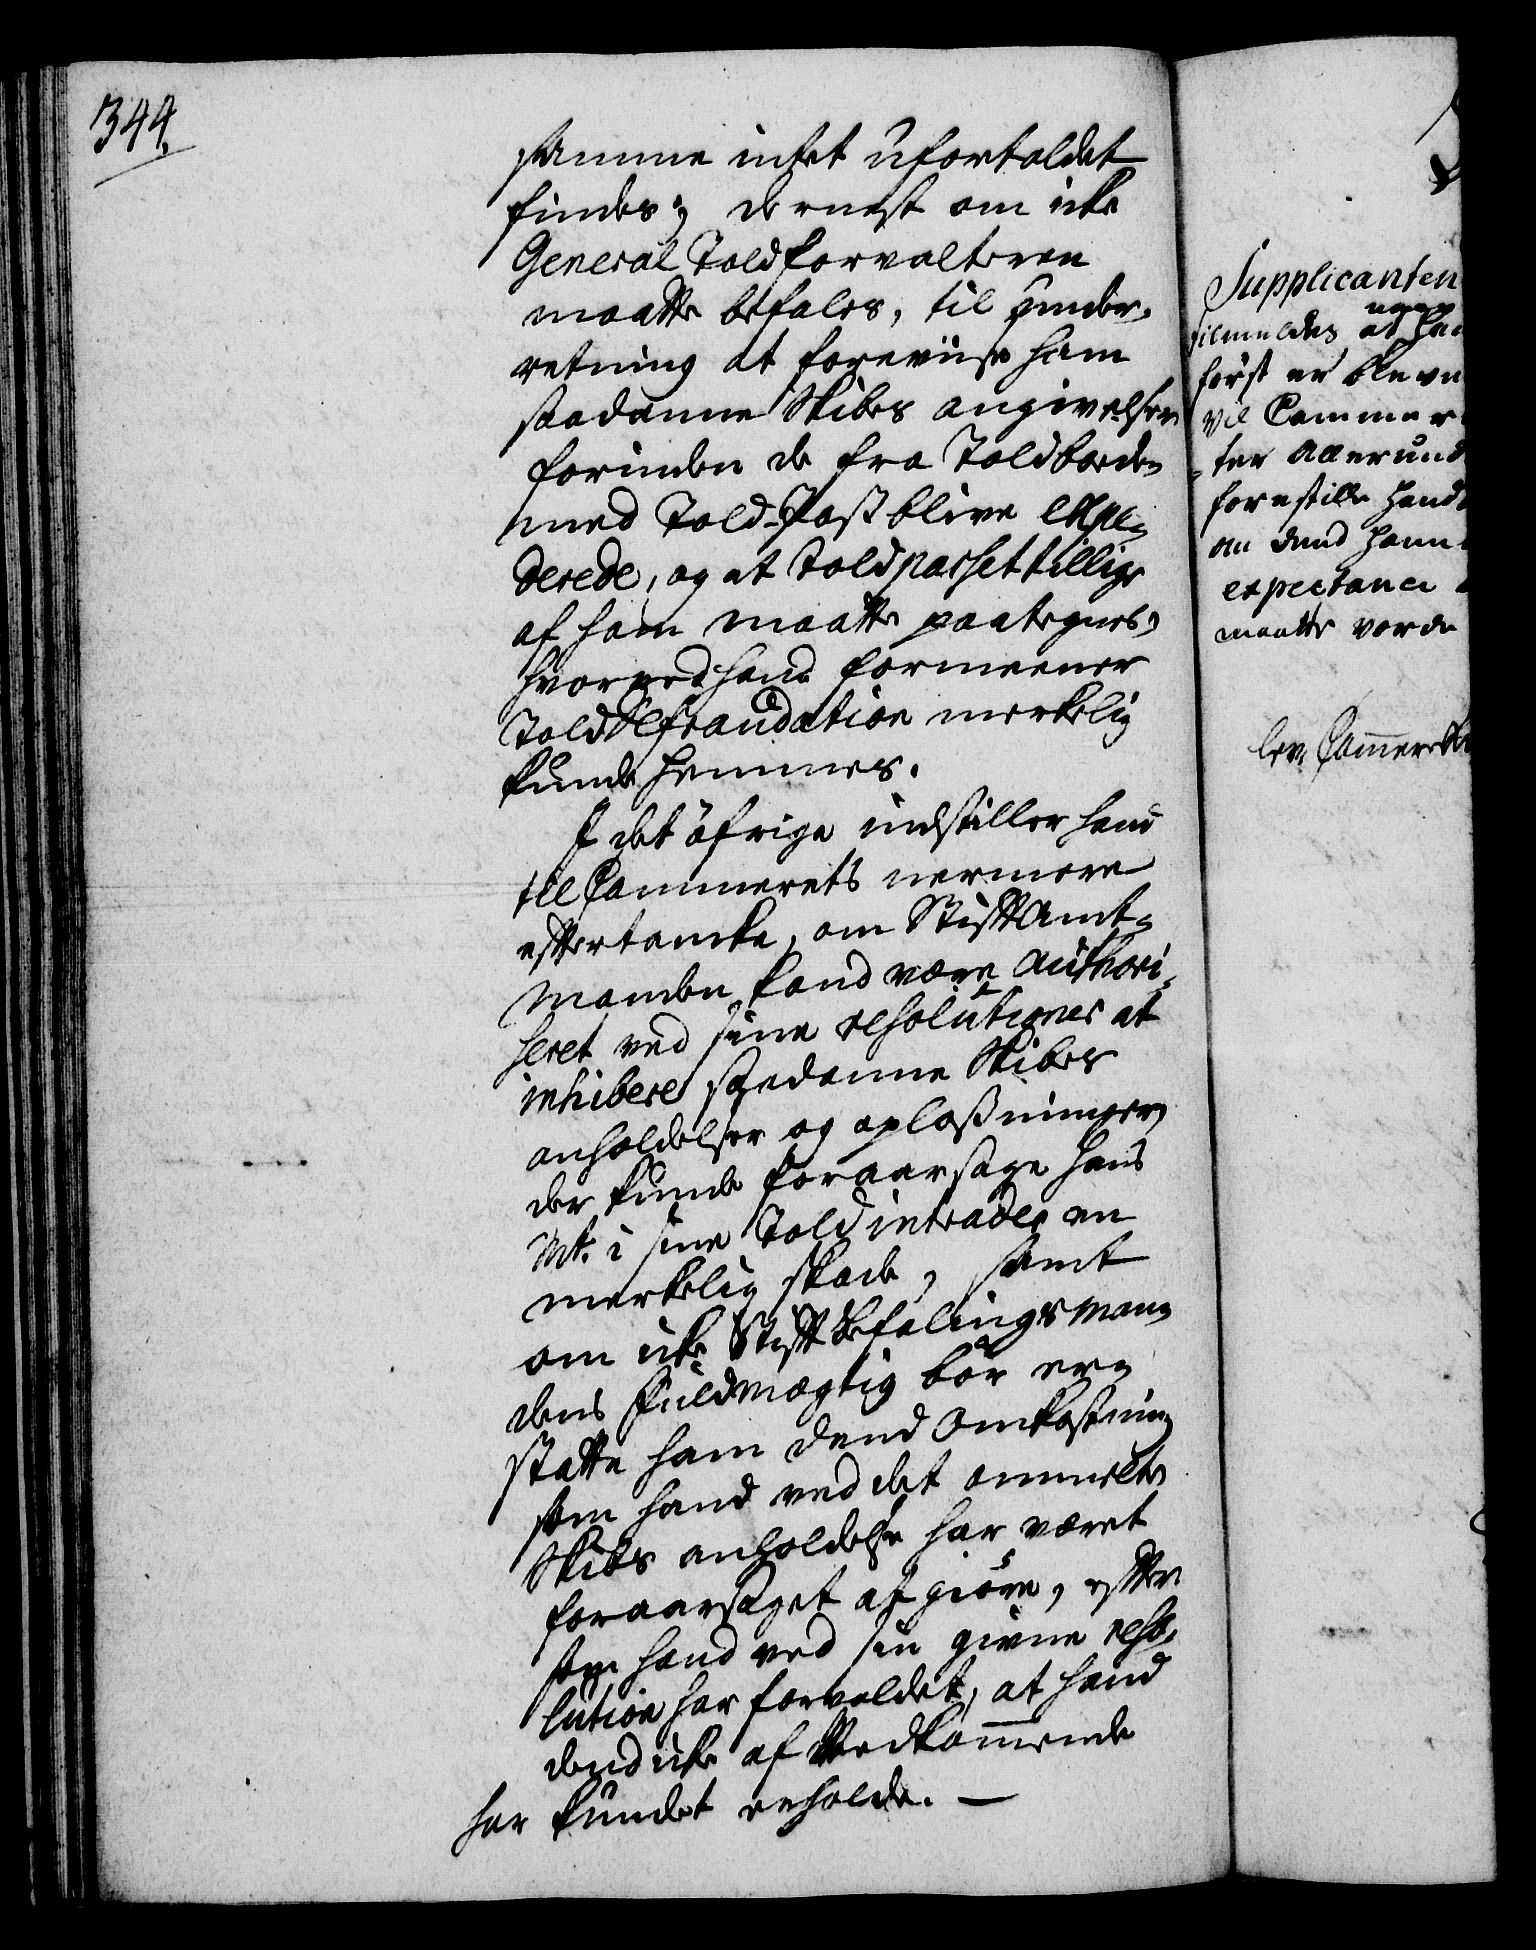 344.
samme intet ufortoldet
findes; dernest om icke
General Toldforvalteren
maatte befales, til under-
retning at foreviise ham
saadanne Skibes angivelser
forinden de fra Toldboeden
med Told-Pass blive expe-
derede, og at Toldpasset tillige
af ham maatte paategnes,
hvorved hand formeener
Told Defraudation merkelig
kunde hemmes.
I det öfrige indstiller hand
til Cammerets nermere
eftertancke, om Stiftamt-
manden kand være authori-
seret ved sine resolutioner at
inhibere saadanne Skibes
anholdelser og oplossninger
der kunde foraarsage Hans
Mt. i sine Told intrader en
merkelig skade, samt
om icke Stiftbefalingsman-
dens Fuldmægtig bör er-
statte ham dend Omkostning
som hand ved det ommelte
Skibs anholdelse har været
foraarsaget at giöre, efter-
som hand ved sin givne reso-
lution har forvoldet, at hand
dend icke af Vedkommende
har kundet erholde. —
Supplicanten
tilmeldes at ha
först er blevne
vil Cammer
ter Allerund
forestille hand
om dend ham
expectance
maatte vorde
lev. Cammeret